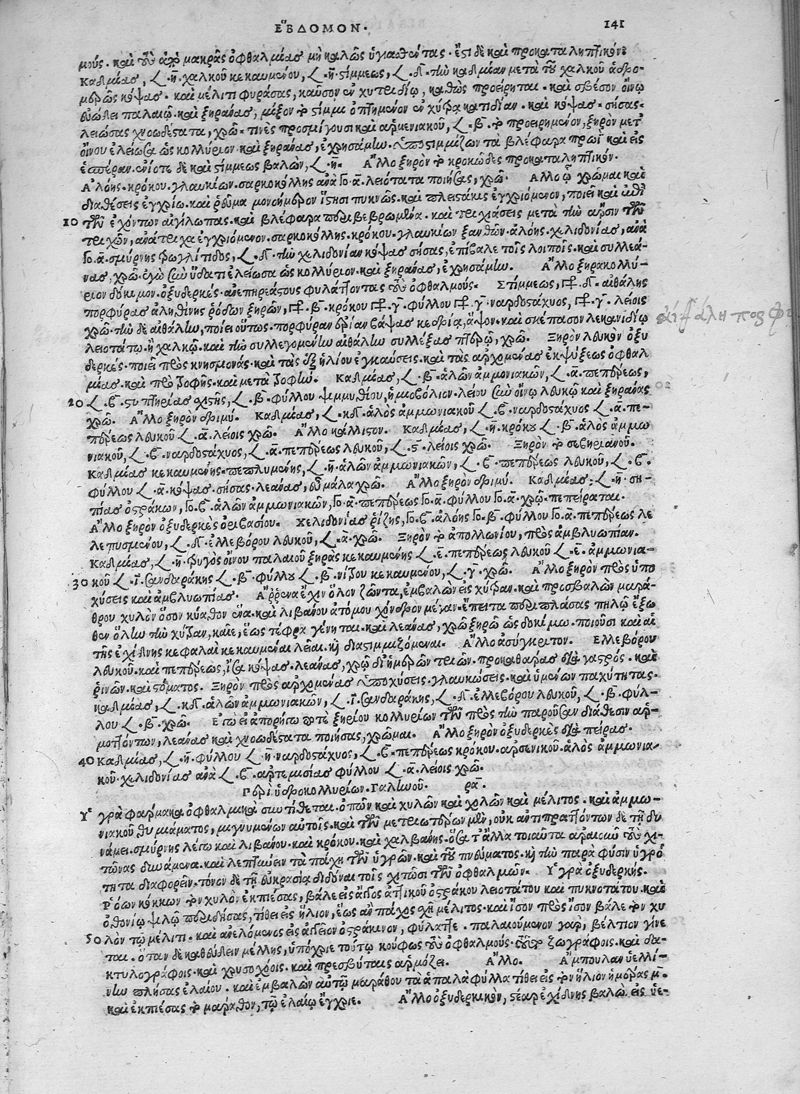 ΕΒΔΟΜΟΝ. 141
μούς. καὶ τοὺς ἀπὸ μακρᾶς ὀφθαλμίας μὴ καλῶς ὑγιασθέντας. ἔστι δὲ καὶ προκαταληπτικόν.
Καδμείας, η. χαλκοῦ κεκαυμένου, η. στίμμεως, δ. τὴν καδμείαν μετὰ τοῦ χαλκοῦ
κόψας. καὶ μέλιτι φυράσας, καῦσον ἐν χυτριδίῳ, καθὼς προείρηται. καὶ σβέσον οἴνῳ
εὐώδει παλαιῷ. καὶ ξηράνας, μίξον τὸ στίμμι ὀπτημένον καὶ κόψας. σήσας.
λειώσας χνοωδέστατα, χρῶ. τινὲς προσμίγουσι καὶ ἀρμενιακοῦ, β. τὸ προειρημένον, ξηρὸν μετ'
οἴνου ἐλείωσα ὡς κολλύριον καὶ ξηράνας, ἐχρησάμην ὑποστιμμίζων τὰ βλέφαρα πρωῒ καὶ εἰς
ἑσπέραν. ἐνίοτε δὲ καὶ στίμμεως βαλὼν, η. Ἄλλο ξηρὸν τὸ κροκῶδες προκαταληπτικόν.
Ἀλόης. κρόκου. γλαυκίου. σαρκοκόλλης ἀνὰ α. λειότατα ποιήσας, χρῶ. Ἄλλο ᾧ χρῶμαι καὶ
διαθέσεις ἐγχρίω. καὶ ῥεῦμα μονοήμερον ἵστησι πυκνῶς καὶ πλειστάκις ἐγχριόμενον, ποιεῖ καὶ ἐπὶ
10 τῶν ἐχόντων αἰγίλωπας. καὶ βλέφαρα περιβεβρωμένα. καὶ τριχιάσεις μετὰ τὴν ἄρσιν τῶν
τριχῶν, ἀνατρίχα ἐγχριόμενον. σαρκοκόλλης. κρόκου. γλαυκίου ξανθῶν. ἀλόης. χελιδονίας, ἀνὰ
α. σμύρνης τρωγλίτιδος, δ. τὴν χελιδονίαν κόψας σήσας, ἐπίβαλε τοῖς λοιποῖς. καὶ συλλεά-
νας, χρῶ. ἐγὼ σὺν ὕδατι ἐλείωσα ὡς κολλύριον. καὶ ξηράνας, ἐχρησάμην. Ἄλλο ξηροκολλύ-
ριον δόκιμον. ὀξυδερκὲς ἀνεπηρεάστους φυλάττον τοὺς ὀφθαλμούς. Στίμμεως, δ. αἰθάλης
πορφύρας ἀληθινῆς ῥόδων ξηρῶν, β. κρόκου γ. φύλλου γ. ναρδοστάχυος, γ. λείοις
χρῶ. τὴν δὲ αἰθάλην, ποίει οὕτως. πορφύραν βάψας κεδρίᾳ, ἅψον. καὶ σκέπασον λεκανιδίῳ
λειοτάτῳ ἢ χαλκῷ. καὶ τὴν συλλεγομένην αἰθάλην συλλέξας πτερῷ, χρῶ. Ξηρὸν λευκὸν ὀξυ
δερκές. ποιεῖ πρὸς κνησμονὰς. καὶ τὰς ἐξ ἡλίου ἐγκαύσεις. καὶ τὰς ἀρχομένας ἐκψύξεις ὀφθαλ
μίας. καὶ πρὸ τροφῆς. καὶ μετὰ τροφήν. Καδμείας, β. ἁλῶν ἀμμωνιακῶν, α. πεπέρεως,
20 ϛ. στυπτηρίας σχιστῆς, β. φύλλου ψιμμυθίου, ἡμιωβόλιον. λείου σὺν οἴνῳ λευκῷ καὶ ξηράνας
χρῶ. Ἄλλο ξηρὸν δριμύ. Καδμείας, κδ. ἁλὸς ἀμμωνιακοῦ ς. ναρδοστάχυος α. πε-
πέρεως λευκοῦ α. λείοις χρῶ. Ἄλλο κάλλιστον. Καδμείας, η. κρόκου β. ἁλὸς ἀμμω
νιακοῦ, ς. ναρδοστάχυος, α. πεπέρεως λευκοῦ, ς. λείοις χρῶ. Ξηρὸν τὸ σεβηριανοῦ.
Καδμείας κεκαυμένης. πεπλυμένης, η. ἁλῶν ἀμμωνιακῶν, ς. πεπέρεως λευκοῦ, ς.
φύλλου α. κόψας. σήσας λεάνας, εὖ μάλα χρῶ. Ἄλλο ξηρὸν δριμύ. Καδμείας η. ση-
πίας ὀστράκων, ς. ἁλῶν ἀμμωνιακῶν, α. πεπέρεως α. φύλλου α. χρῶ. πεπείραται.
Ἄλλο ξηρὸν ὀξυδερκὲς ὀρειβασίου. Χελιδονίας ῥίζης, ς. ἀλόης β. φύλλου α. πεπέρεως λε
λεπισμένου, δ. ἐλλεβόρου λευκοῦ, α. χρῶ. Ξηρὸν τὸ ἀπολλωνίου, πρὸς ἀμβλυωπίαν.
Καδμείας, η. τρυγὸς οἴνου παλαιοῦ ξηρᾶς κεκαυμένης ε. πεπέρεως λευκοῦ ε. ἀμμωνια-
30 κοῦ ι. σανδαράκης β. φύλλου β. νίτρου κεκαυμένου, γ. χρῶ. Ἄλλο ξηρὸν πρὸς ὑπο
χύσεις καὶ ἀμβλυωπίας. Ἄρρενα ἔχιν ὅλον ζῶντα, ἐμβαλὼν εἰς χύτραν. καὶ προσβαλὼν μαρά-
θρου χυλὸν ὅσον κύαθον ἕνα. καὶ λιβανωτοῦ ἀτόμου χόνδρον μέγαν. ἔπειτα περιπλάσας πηλῷ ἔξω
θεν ὅλην τὴν χύτραν, καῖε, ἕως τέφρα γένηται. καὶ λεάνας, χρῶ ξηρῷ ὡς δοκίμῳ. ποιοῦσι καὶ αἱ
τῆς ἐχίδνης κεφαλαὶ κεκαυμέναι λεῖαι. ἢ διαστιμμιζόμεναι. Ἄλλο ἀσύγκριτον. Ἐλλεβόρου
λευκοῦ. καὶ πεπέρεως, ἴσα κόψας. λεάνας, χρῶ δι' ἡμερῶν τριῶν. προκαθάρας διὰ γαστρός. καὶ
ῥινῶν. καὶ στόματος. Ξηρὸν πρὸς ἀρχομένας ὑποχύσεις. γλαυκώσεις. καὶ ὑμένων παχύτητας.
καδμείας, κδ. ἁλῶν ἀμμωνιακῶν, ι. σανδαράκης, δ. ἐλλεβόρου λευκοῦ, β. φύλ-
λου β. χρῶ. Ἐγὼ ἐν ἀπορίᾳ τοτὲ ξηρίου κολλυρίων τῶν πρὸς τὴν παροῦσαν διάθεσιν ἁρ-
μοττόντων, λεάνας. καὶ χνοωδέστατα ποιήσας, χρῶμαι. Ἄλλο ξηρὸν ὀξυδερκὲς διὰ πείρας.
40 Καδμείας, η. φύλλου η. ναρδοστάχυος, ς. πεπέρεως κρόκου. ἀρσενικοῦ. ἁλὸς ἀμμωνια-
κοῦ. χελιδονίας ἀνὰ ς. ἀρτεμισίας φύλλου α. λείοις χρῶ.
Περὶ ὑδροκολλυρίων. Γαληνοῦ. ρα.
Ὑγρὰ φάρμακα ὀφθαλμικὰ συντίθεται. ὀπῶν καὶ χυλῶν καὶ χολῶν καὶ μέλιτος. καὶ ἀμμω-
νιακοῦ θυμιάματος, μιγνυμένων αὐτοῖς. καὶ τῶν μετριωτέρων μὲν, οὐκ ἀντιπραττόντων δὲ τῇ δυ
νάμει. σμύρνης λέγω καὶ λιβάνου. καὶ κρόκου. καὶ χαλβάνης. ὅσα τ' ἄλλα τοιαῦτα ἀραιοῦν τοὺς χι-
τῶνας δυνάμενα. καὶ λεπτύνειν τὰ πάχη τῶν ὑγρῶν. καὶ τοῦ πνεύματος. ἢ τὴν παρὰ φύσιν ὑγρό
τητα διαφορεῖν. τόνον δὲ τῇ εὐκρασίᾳ διδόναι τοῖς χιτῶσι τῶν ὀφθαλμῶν. Ὑγρὰ ὀξυδερκής.
Ῥόων κόκκων τὸν χυλὸν ἐκπιέσας, βάλε εἰς ἄγγος ἀττικοῦ ὀστράκου λειοτάτου καὶ πυκνοτάτου. καὶ
ὀθονίῳ ψιλῷ περιδήσας, τίθει εἰς ἥλιον, ἕως ἂν πάχος σχῇ μέλιτος. καὶ ἴσον πρὸς ἴσον βάλε τὸν χυ
50 λὸν τῷ μέλιτι. καὶ ἀνελόμενος εἰς ἀγγεῖον ὀστράκινον, φύλαττε. παλαιούμενον γὰρ, βέλτιον γίνε
ται. ὅταν δὲ καθεύδειν μέλλῃς, ὑπόχριε τούτῳ κούφως τοὺς ὀφθαλμούς. ζωγράφοις. καὶ δα-
κτυλογράφοις. καὶ χρυσοχόοις. καὶ πρεσβύταις ἁρμόζει. Ἄλλο. Ἄμπουλαν ὑελί-
νην πλήσας ἐλαίου. καὶ ἐμβαλὼν αὐτῷ μαράθου τὰ ἁπαλὰ φύλλα τίθει εἰς τὸν ἥλιον ἡμέρας μ.
καὶ ἐκπιέσας τὸ μάραθον, τῷ ἐλαίῳ ἔγχριε. Ἄλλο ὀξυδερκικὸν, στέαρ ἐχίδνης βαλὼν εἰς ὑέ-